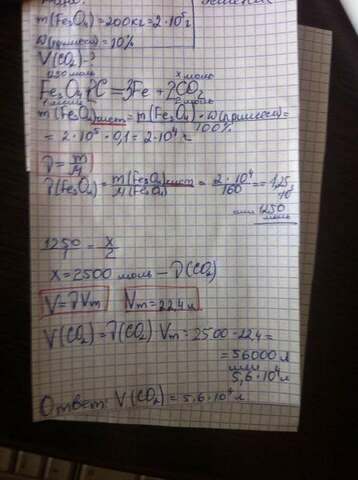 m(Fe₃O₄)=200кг=2·10⁵г
W(примеси)=10%
V(CO₂)-?
1250 моль x моль
Fe₃O₄+2C=3Fe+2CO₂
1 моль 2 моль
m(Fe₃O₄)чист= m(Fe₃O₄)·W(примеси)/100% =
= 2·10⁵·0,1=2·10⁴г
ν=m/M
ν(Fe₃O₄)= m(Fe₃O₄)чист/M(Fe₃O₄) = 2·10⁴/160 == 1,25·10³
или 1250 моль
1250/1 = x/2
x=2500 моль – ν(CO₂)
V=νVm Vm=22,4л
V(CO₂)=ν(CO₂)·Vm=2500·22,4=
=56000л
или
5,6·10⁴л
Ответ: V(CO₂)=5,6·10⁴л